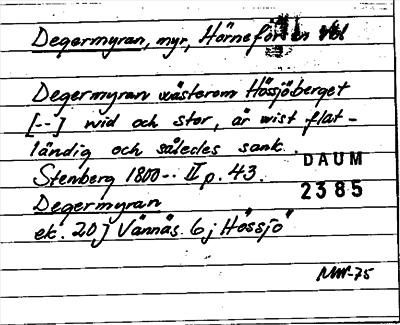 Degermyran, myr, Hörnefors sn Vbl
Degermyran västerom Hössjöberget
[--] vid och stor, är vist flat-
ländig och således sank.
Stenberg 1800-. II p. 43.
DAUM
2385
Degermyran
ek. 20 J Vännäs. 6 j Hössjö
MW-75